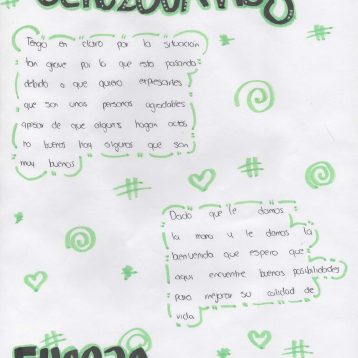 Tengo en claro por la situación
tan grave por lo que esta pasando
debido a que quiero expresarles
que son unas personas agradables
apisar de que alguns hagan actos
no buenos hay alguros que son
muy buenos
Dado que le damos
la mano y le damos la
bienvenida que espero que
aqui encuentre buenas posibilidades
para mejorar su calidad de
vida